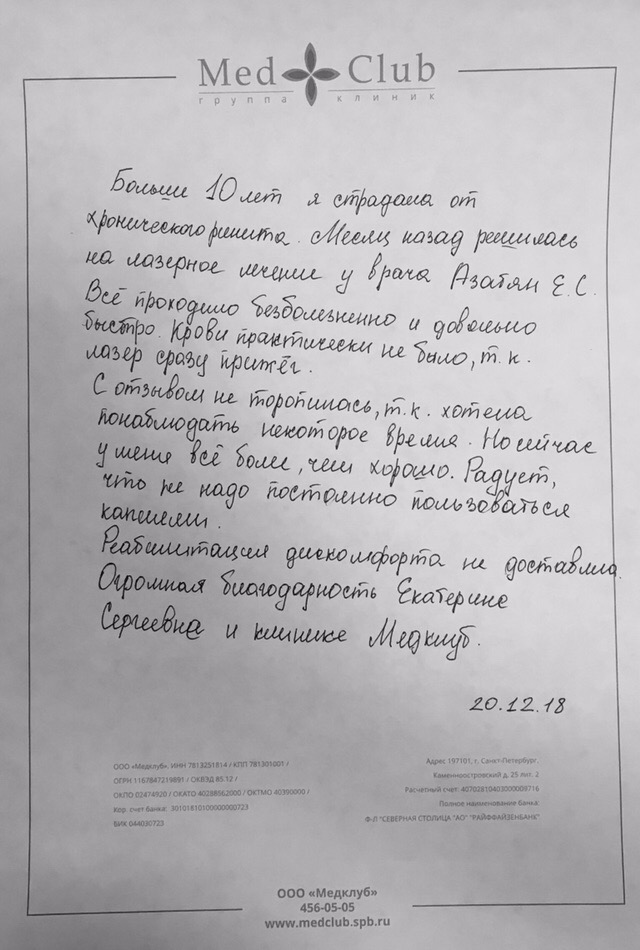 Med Club
группа клиник
Больше 10 лет я страдала от
хронического ринита. Месяц назад решилась
на лазерное лечение у врача Азатян Е.С.
Всё проходило безболезненно и довольно
быстро. Крови практически не было, т.к.
лазер сразу прижёг.
С отзывом не торопилась, т.к. хотела
понаблюдать некоторое время. Но сейчас
у меня всё более, чем хорошо. Радует,
что не надо постоянно пользоваться
каплями.
Реабилитация дискомфорта не доставила.
Огромная благодарность Екатерине
Сергеевне и клинике Медклуб.
20.12.18
ООО «Медклуб». ИНН 7813251814 / КПП 781301001 /
ОГРН 1167847219891 / ОКВЭД 85.12 /
ОКПО 02474920 / ОКАТО 40288562000 / ОКТМО 40390000 /
Кор. счет банка: 30101810100000000723
БИК 044030723
Адрес 197101, г. Санкт-Петербург,
Каменноостровский д. 25 лит. 2
Расчетный счет: 40702810403000009716
Полное наименование банка:
Ф-Л "СЕВЕРНАЯ СТОЛИЦА "АО" "РАЙФФАЙЗЕНБАНК"
ООО «Медклуб»
456-05-05
www.medclub.spb.ru